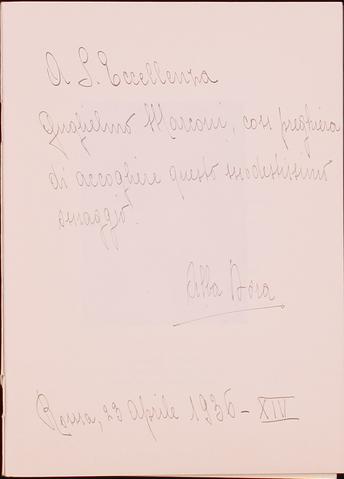 A S. Eccellenza
Guglielmo Marconi, con preghiera
di accogliere questo modestissimo
omaggio.
Alba
Roma, 23 Aprile 1936 - XIV